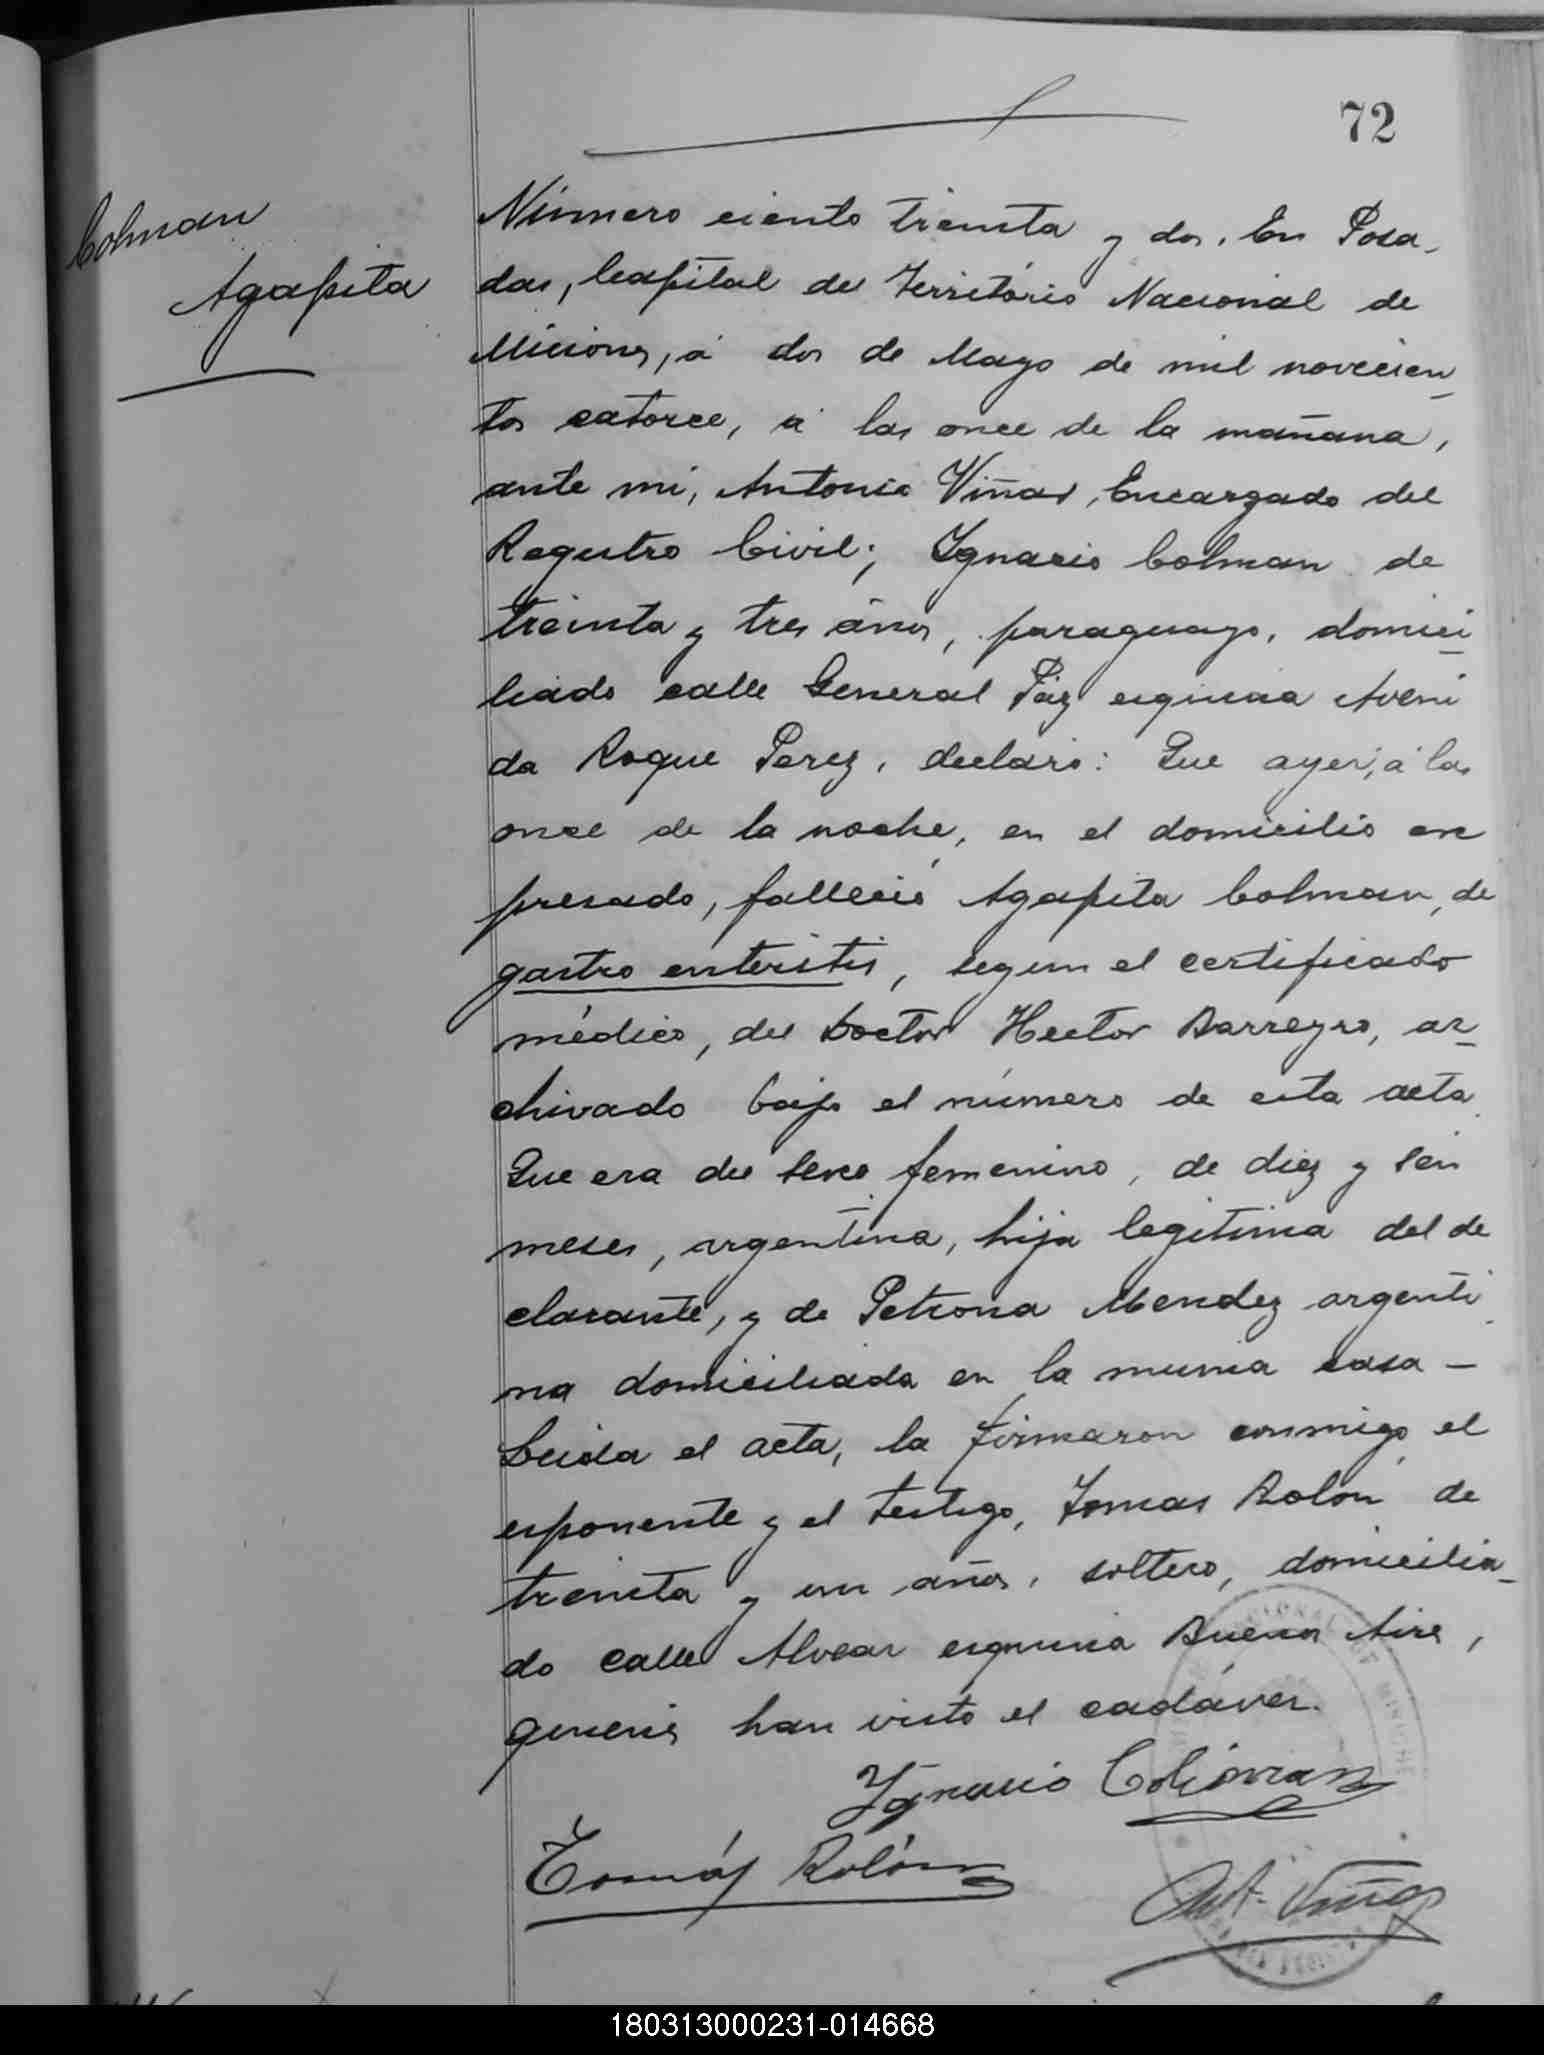 72
Colman
Agapita
Número ciento treinta y dos. En Posa-
das, Capital del Territorio Nacional de
Misiones, á dos de Mayo de mil novecien-
tos catorce, á las once de la mañana,
ante mi, Antonio Viñas, Encargado del
Registro Civil; Ygnacio Colman de
treinta y tres años, paraguayo, domici-
liado calle General Páz esquina Aveni
da Roque Perez, declaró: Que ayer, á las
once de la noche, en el domicilio ex
presado, falleció Agapita Colman, de
gastro enteritis, segun el certificado
médico, del Doctor Hector Barreyro, ar-
chivado bajo el número de esta acta
Que era del sexo femenino, de diez y seis
meses, argentina, hija legitima del de
clarante, y de Petrona Mendez argenti
na domiciliada en la misma casa -
Leida el acta, la firmaron conmigo el
esponente y el testigo, Tomas Rolón de
treinta y un años, soltero, domicilia-
do calle Alvear esquina Buenos Aires,
quienes han visto el cadáver.
Ygnacio Colman
Tomás Rolón
Ant. Viñas
180313000231-014668